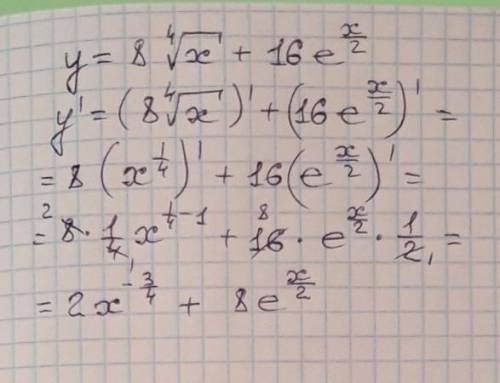 y = 8 ∜x + 16 e^(x/2)
y' = (8 ∜x)' + (16 e^(x/2))' =
= 8 (x^(1/4))' + 16 (e^(x/2))' =
= 8 · 1/4 x^(1/4 - 1) + 16 · e^(x/2) · 1/2 =
= 2 x^(-3/4) + 8 e^(x/2)